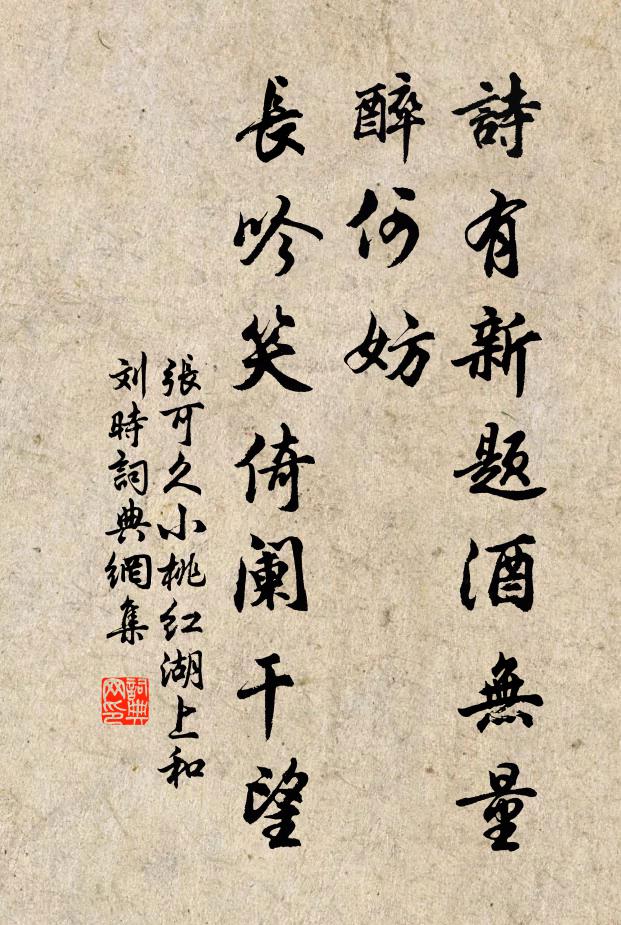 詩有新題酒無量
醉何妨
長吟笑倚闌干望
張可久小桃红湖上和
刘時詞典網集
詞典
网印